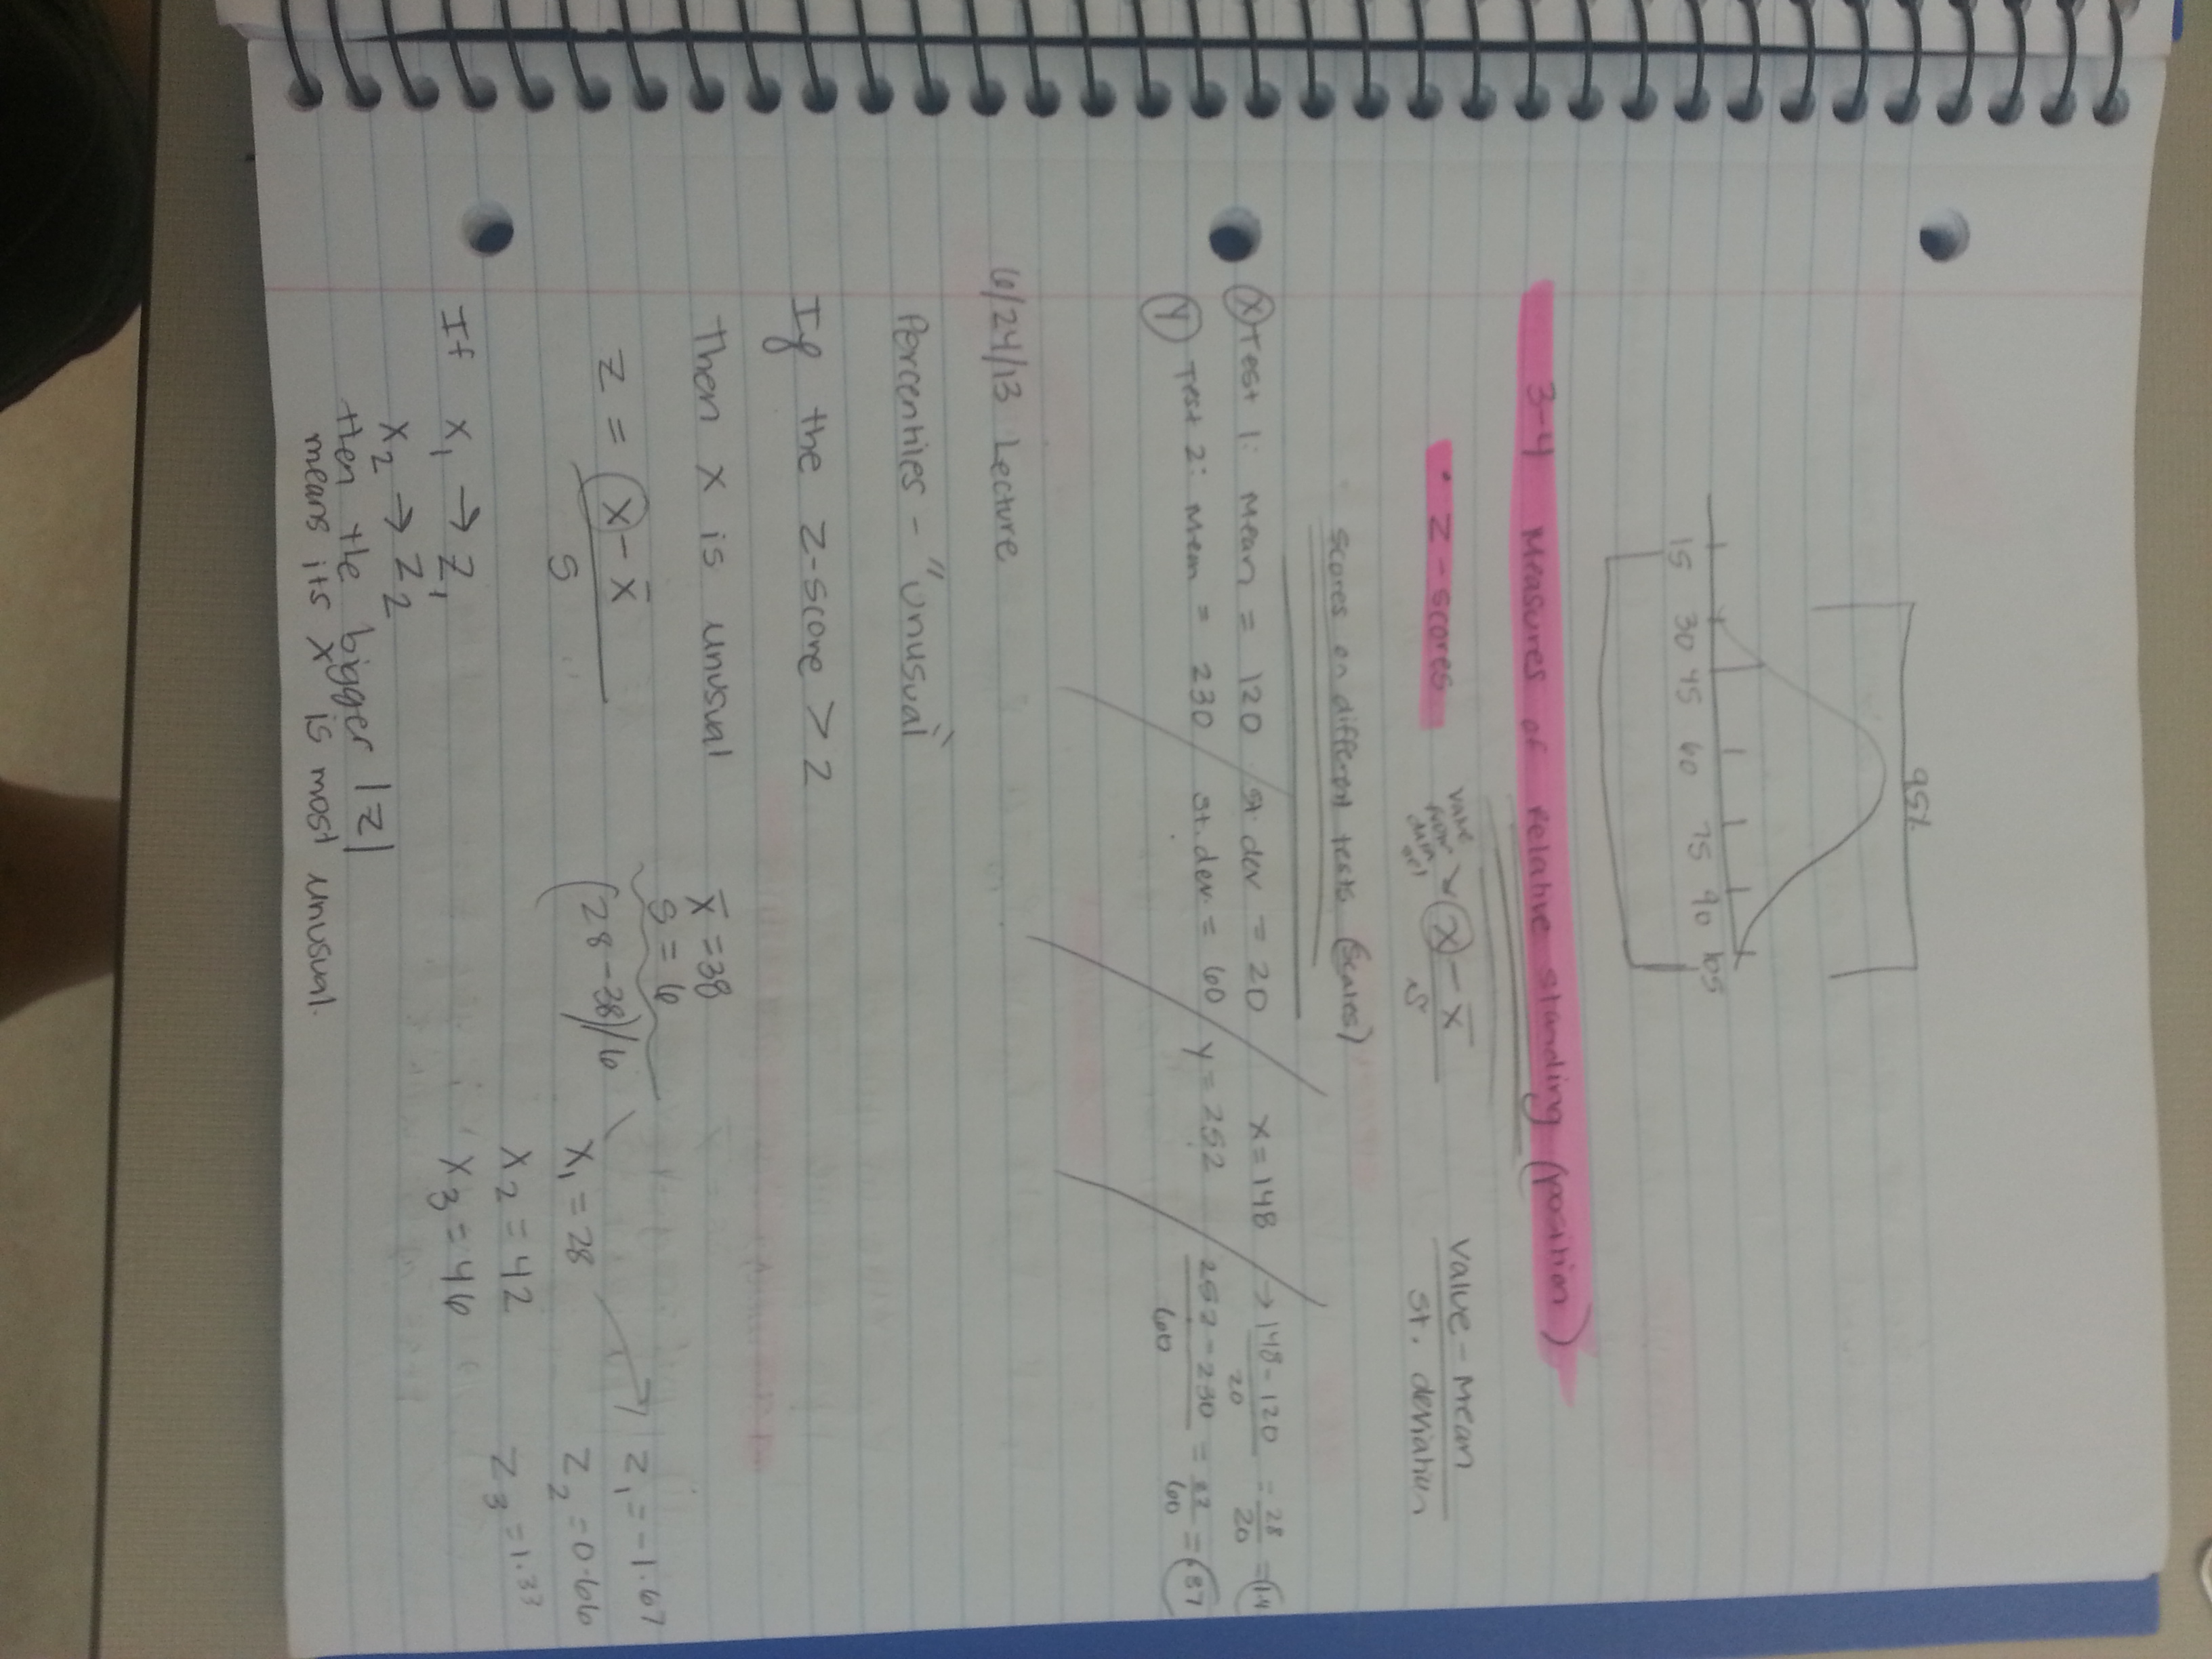 95%
15 30 45 60 75 90 105
3-4 Measures of relative standing (position)
· Z-scores value from data set → x - x̄ / s value - mean / st. deviation
scores on different tests (scales)
X Test 1: mean = 120 st. dev = 20 x = 148 → 148 - 120 / 20 = 28 / 20 = 1.4
Y Test 2: mean = 230 st. dev = 60 y = 252 252 - 230 / 60 = 22 / 60 = .37
6/24/13 Lecture
Percentiles - "Unusual"
If the z-score > 2
Then x is unusual
x̄ = 38
s = 6
z = x - x̄ / s
(28 - 38)/6
x₁ = 28 z₁ = -1.67
x₂ = 42 z₂ = 0.66
x₃ = 46 z₃ = 1.33
If x₁ → z₁
x₂ → z₂
then the bigger |z|
means its x is most unusual.